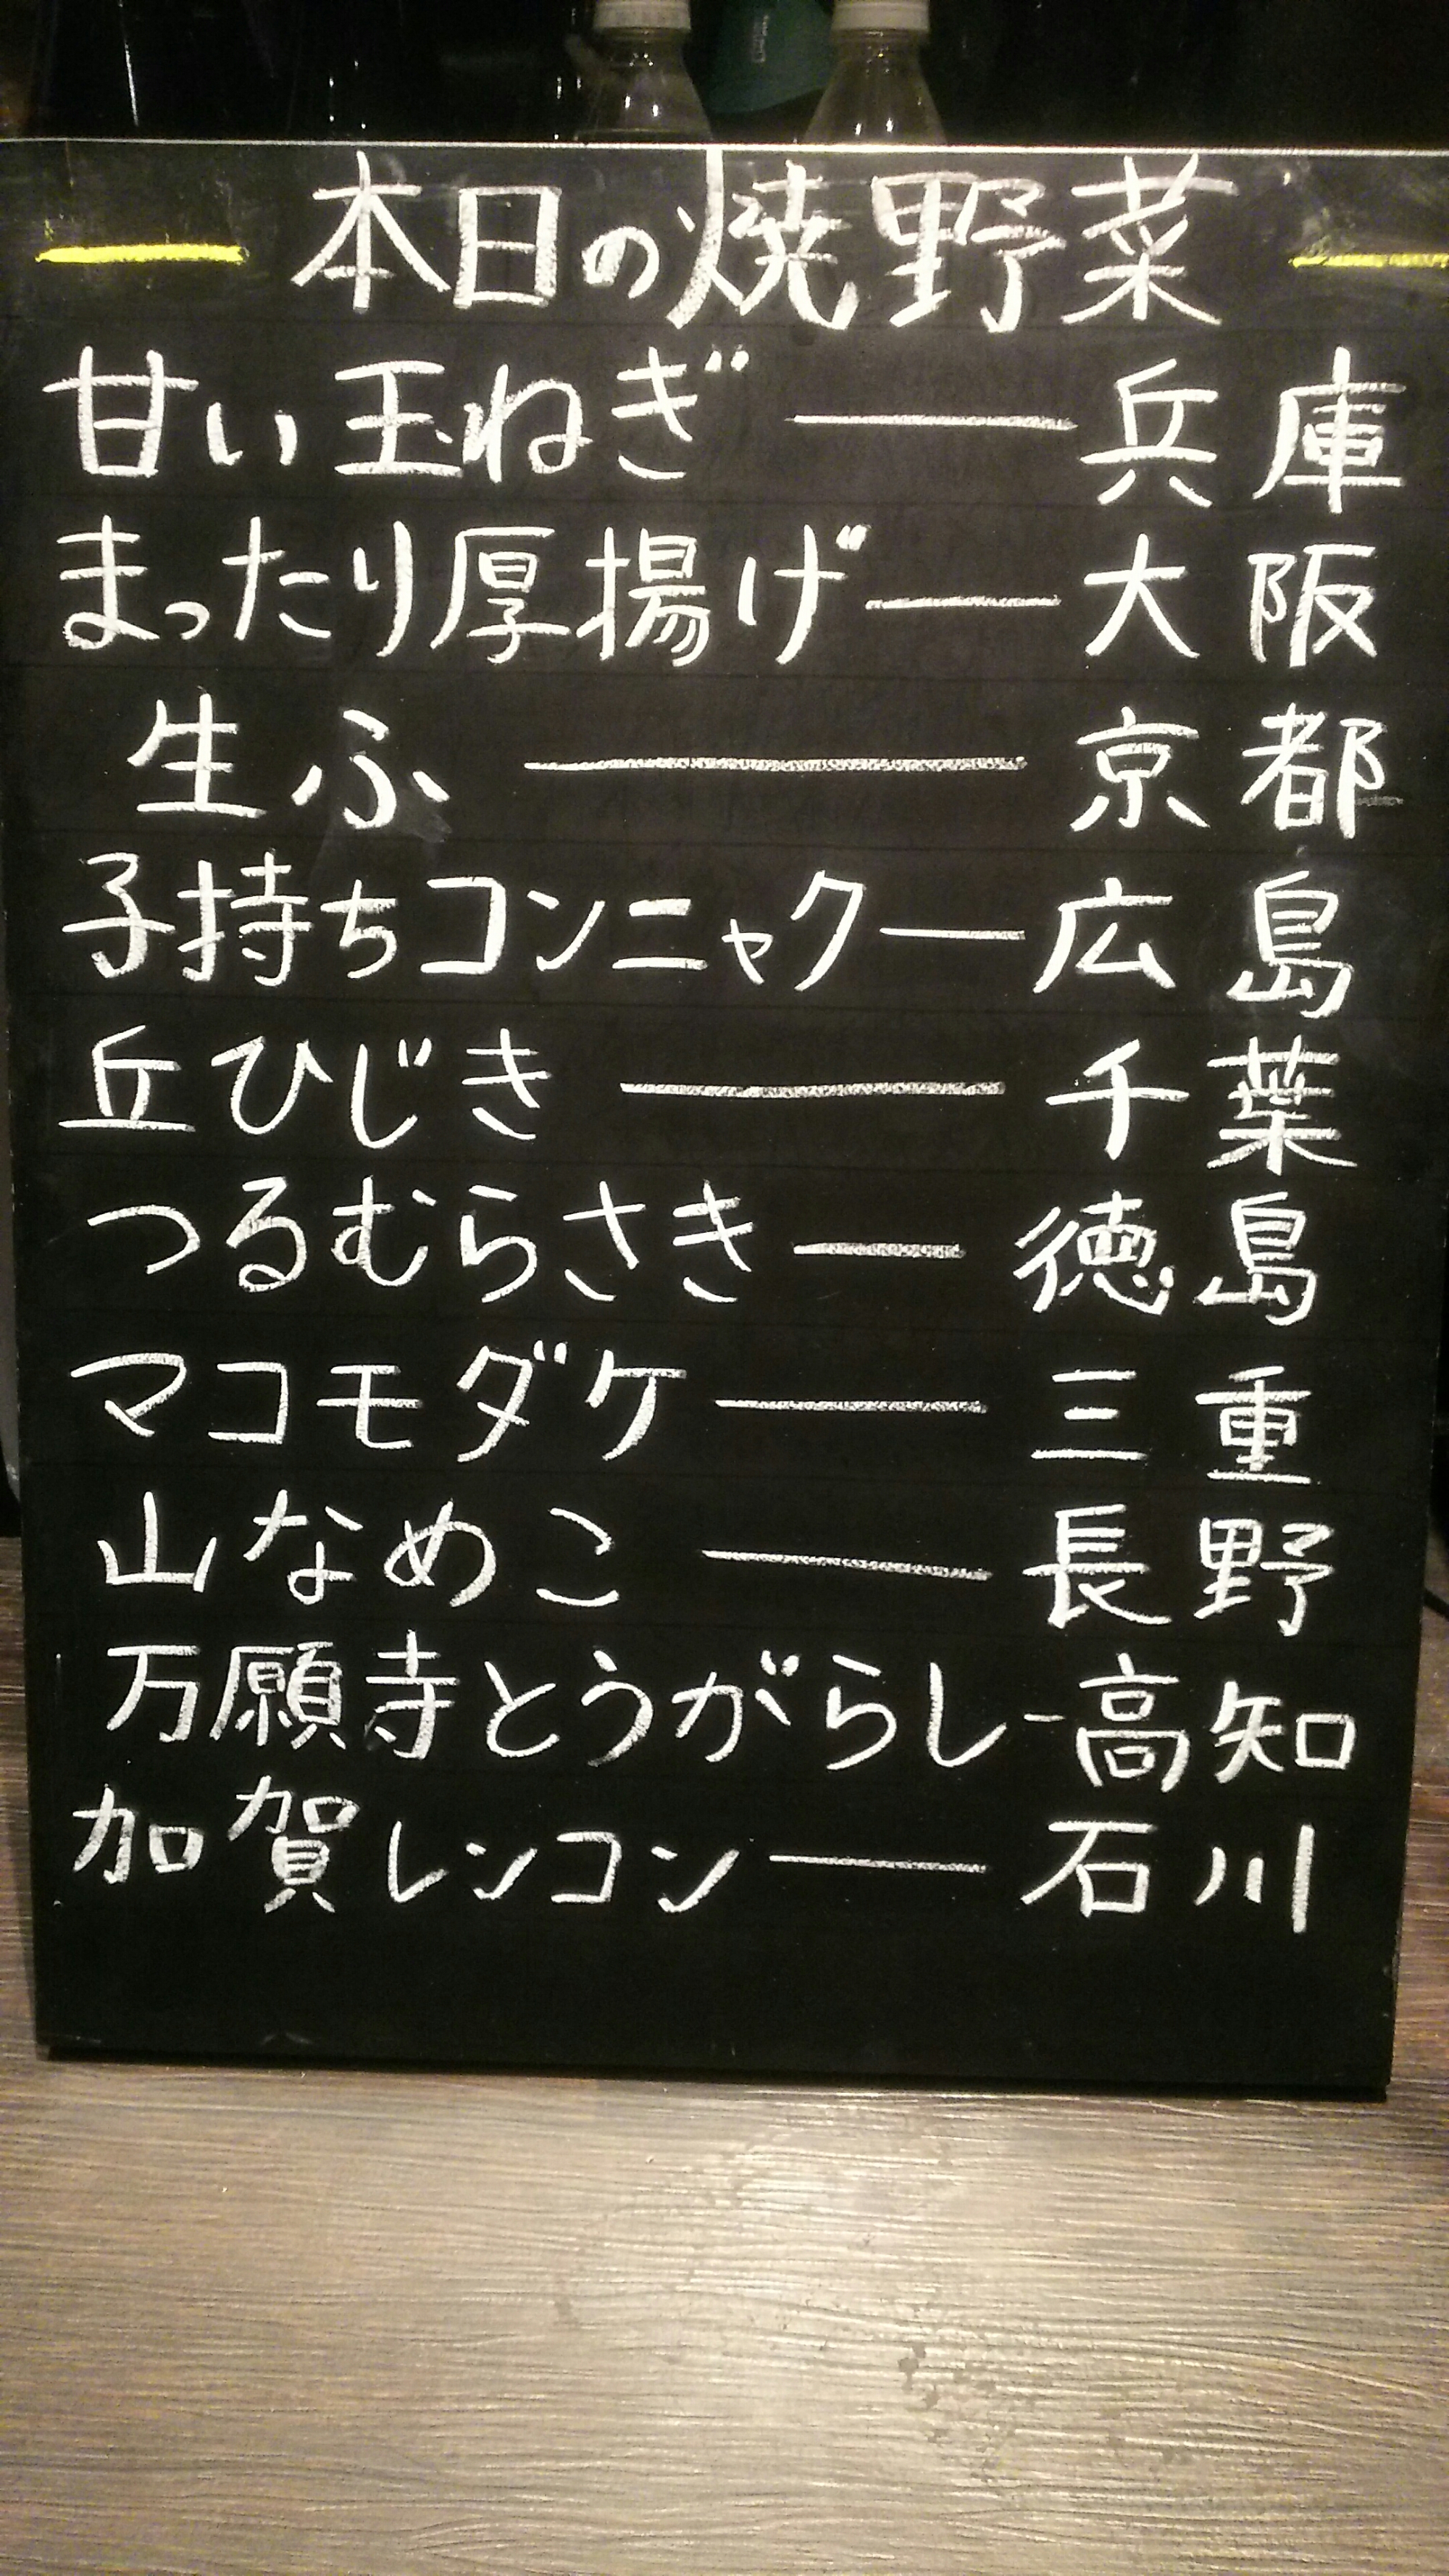 本日の焼野菜
甘い玉ねぎ――兵庫
まったり厚揚げ――大阪
生ふ――京都
子持ちコンニャク――広島
丘ひじき――千葉
つるむらさき――徳島
マコモダケ――三重
山なめこ――長野
万願寺とうがらし-高知
加賀レンコン――石川